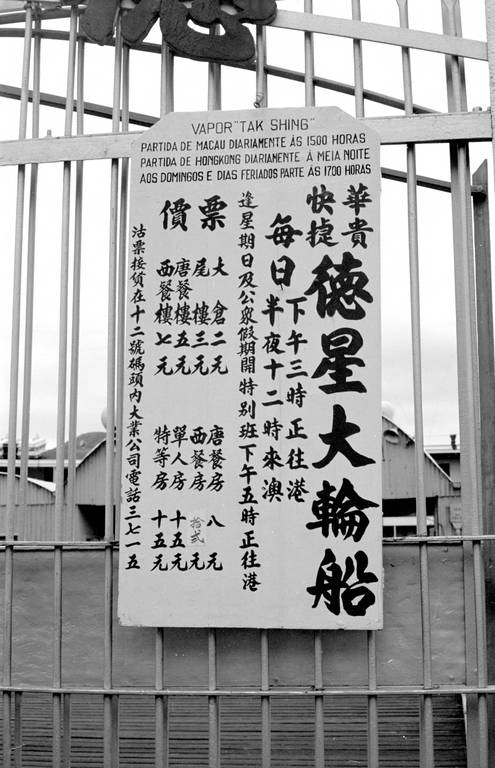 VAPOR "TAK SHING"
PARTIDA DE MACAU DIARIAMENTE ÁS 1500 HORAS
PARTIDA DE HONGKONG DIARIAMENTE À MEIA NOITE
AOS DOMINGOS E DIAS FERIADOS PARTE ÀS 1700 HORAS
華貴
快捷
德星大輪船
每日
下午三時正往港
半夜十二時來澳
逢星期日及公衆假期開特別班下午五時正往港
票價
大倉二元
尾樓三元
唐餐樓五元
西餐樓七元
唐餐房八元
西餐房拾貳元
單人房十五元
特等房十五元
沽票接貨在十二號碼頭内大業公司電話三七一五